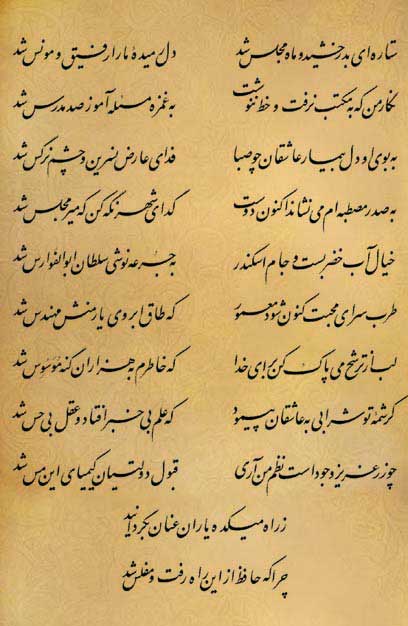 ستاره‌ای بدرخشید و ماه مجلس شد دل رمیدهٔ ما را رفیق و مونس شد
نگار من که به مکتب نرفت و خط ننوشت به غمزه مسئله آموز صد مدرس شد
به بوی او دل بیمار عاشقان چو صبا فدای عارض نسرین و چشم نرگس شد
به صدر مصطبه‌ام می‌نشاند اکنون دوست گدای شهر نگه کن که میر مجلس شد
خیال آب خضر بست و جام اسکندر به جرعه نوشی سلطان ابوالفوارس شد
طرب سرای محبت کنون شود معمور که طاق ابروی یار منش مهندس شد
لب از ترشح می پاک کن برای خدا که خاطرم به هزاران گنه موسوس شد
کرشمه تو شرابی به عاشقان پیمود که علم بی‌خبر افتاد و عقل بی‌حس شد
چو زر عزیز وجود است نظم من آری قبول دولتیان کیمیای این مس شد
ز راه میکده یاران عنان بگردانید
چرا که حافظ از این راه رفت و مفلس شد